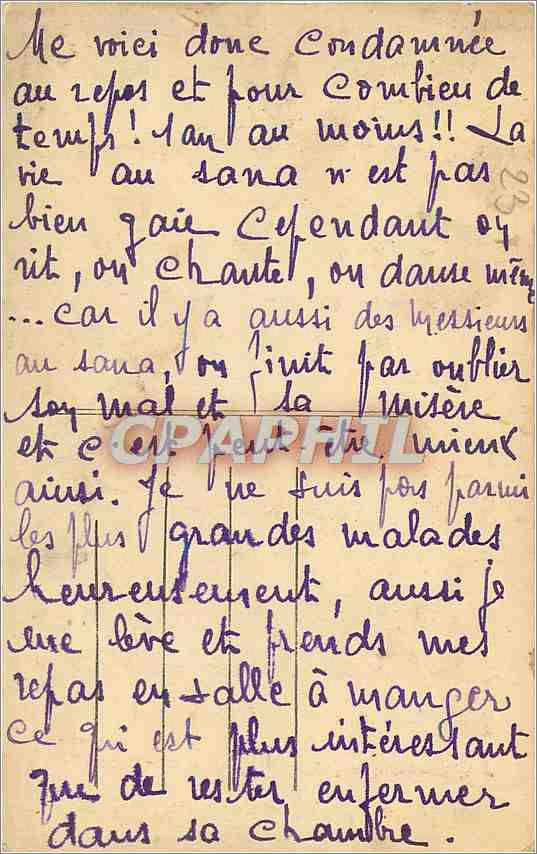 Me voici donc condamnée
au repos et pour combien de
temps! 1 an au moins!! La
vie au sana n'est pas
bien gaie cependant on
rit, on chante, on danse même
... car il y a aussi des messieurs
au sana, on finit par oublier
son mal et sa misère
et c'est peut être mieux
ainsi. Je ne suis pas parmi
les plus grandes malades
heureusement, aussi je
me lève et prends mes
repas en salle à manger
ce qui est plus intéressant
que de rester enfermer
dans sa chambre.
23
CPAPHIL